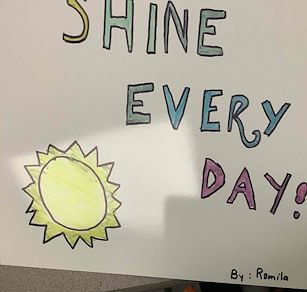 SHINE
EVERY
DAY!
By : Romila